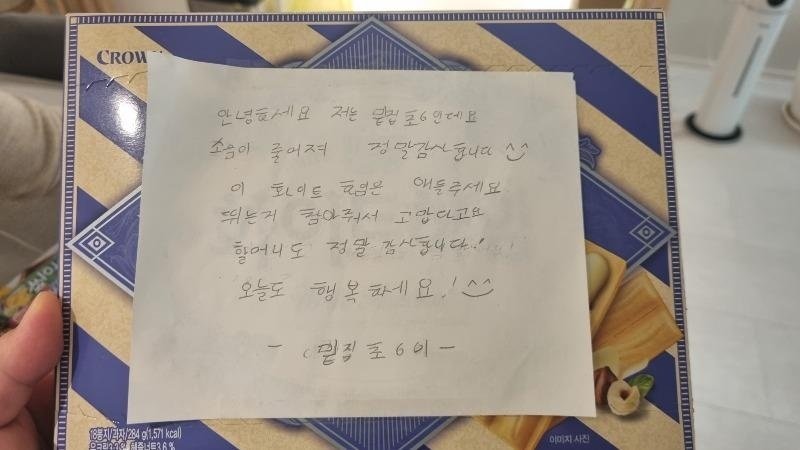 CROWN
안녕하세요 저는 밑집 초6인데요
소음이 줄어져 정말감사합니다 ^^
이 화이트 하임은 애들주세요
뛰는거 참아줘서 고맙다고요
할머니도 정말 감사합니다!
오늘도 행복하세요! ^^
- 밑집 초6이 -
18봉지/과자/284 g(1,571 kcal)
이미지 사진